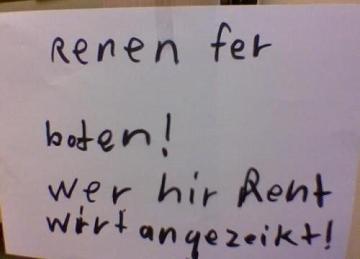 Renen fer
boten!
wer hir Rent
wirt angezeikt!